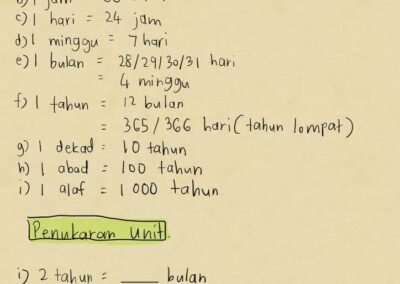 b) 1 jam
c) 1 hari = 24 jam
d) 1 minggu = 7 hari
e) 1 bulan = 28/29/30/31 hari
= 4 minggu
f) 1 tahun = 12 bulan
= 365/366 hari (tahun lompat)
g) 1 dekad = 10 tahun
h) 1 abad = 100 tahun
i) 1 alaf = 1 000 tahun
Penukaran Unit.
i) 2 tahun = ____ bulan